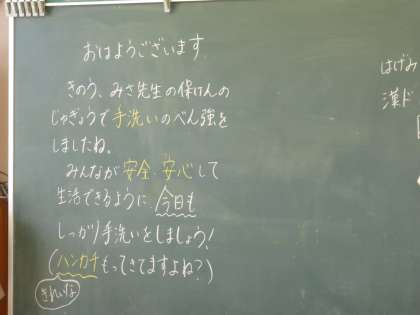 おはようございます。
きのう、みさ先生の保けんの
じゃぎょうで手洗いのべん強を
しましたね。
みんなが安全・安心して
生活できるように、今日も
しっかり手洗いをしましょう!
(ハンカチもってきてますよね?)
きれいな
はげみ
漢ド